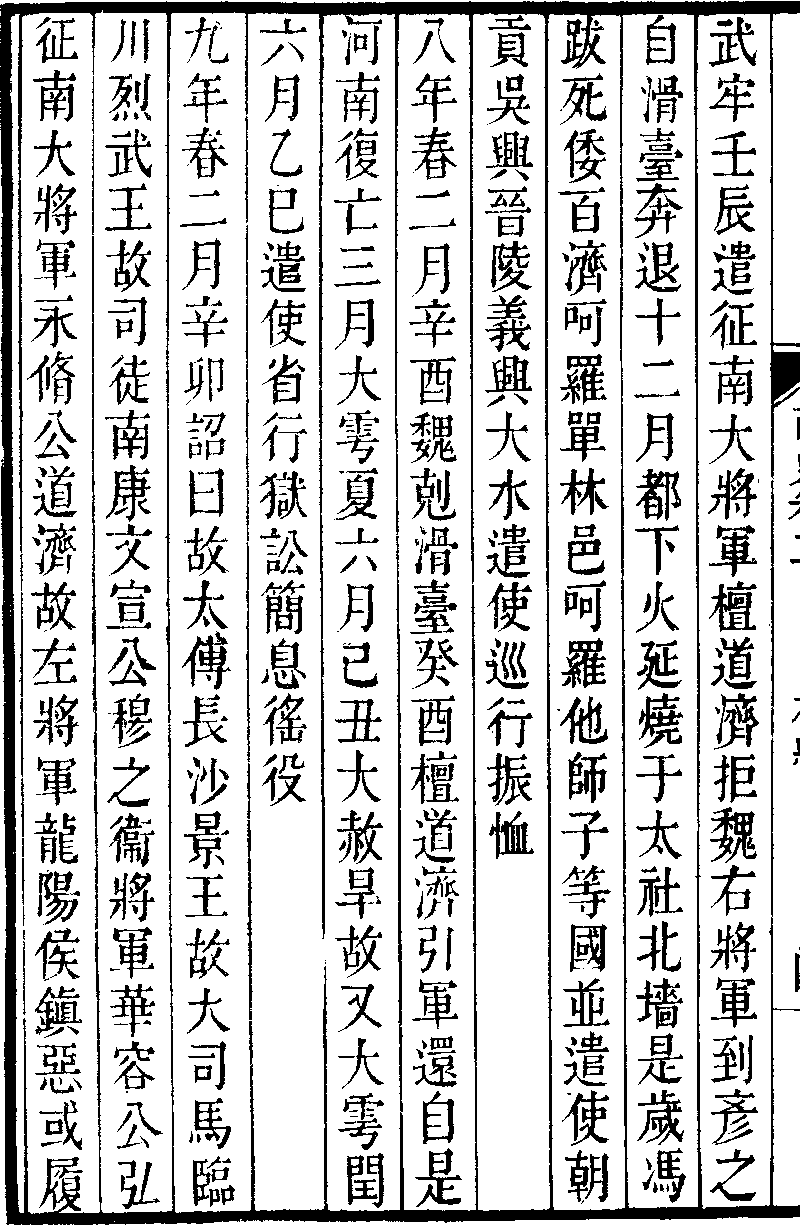 武牢壬辰遣征南大將軍檀道濟拒魏右將軍到彥之
自滑臺奔退十二月都下火延燒于太社北墻是歲馮
跋死倭百濟呵羅單林邑呵羅他師子等國並遣使朝
貢吳興晉陵義興大水遣使巡行振恤
八年春二月辛酉魏剋滑臺癸酉檀道濟引軍還自是
河南復亡三月大雩夏六月己丑大赦旱故又大雩閏
六月乙巳遣使省行獄訟簡息徭役
九年春二月辛卯詔曰故太傅長沙景王故大司馬臨
川烈武王故司徒南康文宣公穆之衞將軍華容公弘
征南大將軍永脩公道濟故左將軍龍陽侯鎮惡或履